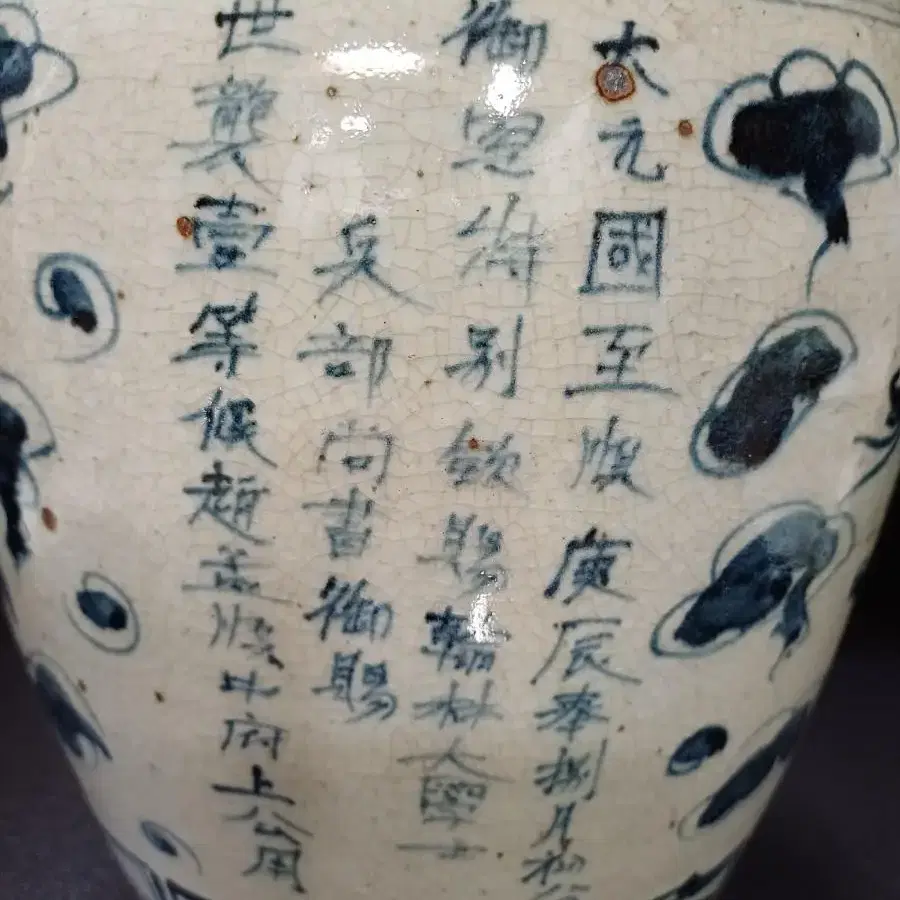 大元國至順庚辰奉捌月初
御恩特別欽賜翰林大學士
兵部尚書御賜
世襲壹等侯趙孟頫中府上公用